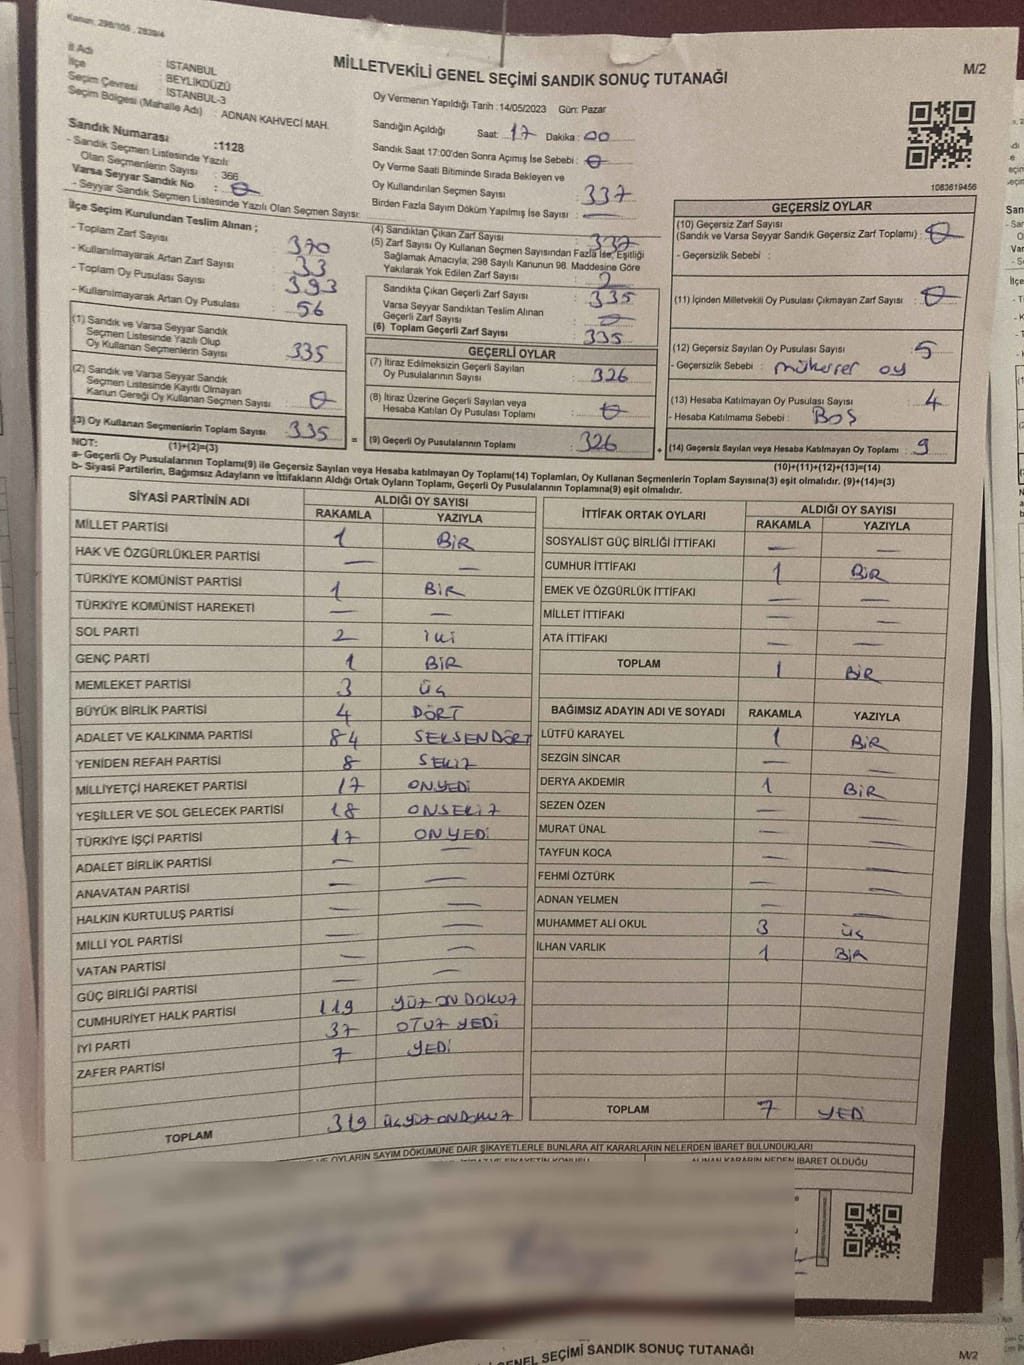 Kanun: 298/105 , 2839/4
MİLLETVEKİLİ GENEL SEÇİMİ SANDIK SONUÇ TUTANAĞI
M/2
İl Adı : İSTANBUL
İlçe : BEYLİKDÜZÜ
Seçim Çevresi : İSTANBUL-3
Seçim Bölgesi (Mahalle Adı) : ADNAN KAHVECİ MAH.
Sandık Numarası :1128
- Sandık Seçmen Listesinde Yazılı
Olan Seçmenlerin Sayısı : 366
Varsa Seyyar Sandık No : 0
- Seyyar Sandık Seçmen Listesinde Yazılı Olan Seçmen Sayısı:
Oy Vermenin Yapıldığı Tarih :14/05/2023 Gün: Pazar
Sandığın Açıldığı Saat: 17 Dakika: 00
Sandık Saat 17:00'den Sonra Açımış İse Sebebi : 0
Oy Verme Saati Bitiminde Sırada Bekleyen ve
Oy Kullandırılan Seçmen Sayısı : 337
Birden Fazla Sayım Döküm Yapılmış İse Sayısı : —
1083619456
İlçe Seçim Kurulundan Teslim Alınan ;
- Toplam Zarf Sayısı : 370
- Kullanılmayarak Artan Zarf Sayısı : 33
- Toplam Oy Pusulası Sayısı : 393
- Kullanılmayarak Artan Oy Pusulası : 56
(1) Sandık ve Varsa Seyyar Sandık
Seçmen Listesinde Yazılı Olup
Oy Kullanan Seçmenlerin Sayısı : 335
(2) Sandık ve Varsa Seyyar Sandık
Seçmen Listesinde Kayıtlı Olmayan
Kanun Gereği Oy Kullanan Seçmen Sayısı : 0
(3) Oy Kullanan Seçmenlerin Toplam Sayısı : 335
(1)+(2)=(3)
(4) Sandıktan Çıkan Zarf Sayısı : 337
(5) Zarf Sayısı Oy Kullanan Seçmen Sayısından Fazla İse, Eşitliği
Sağlamak Amacıyla, 298 Sayılı Kanunun 98. Maddesine Göre
Yakılarak Yok Edilen Zarf Sayısı : 2
Sandıkta Çıkan Geçerli Zarf Sayısı : 335
Varsa Seyyar Sandıktan Teslim Alınan
Geçerli Zarf Sayısı : 0
(6) Toplam Geçerli Zarf Sayısı : 335
GEÇERLİ OYLAR
(7) İtiraz Edilmeksizin Geçerli Sayılan
Oy Pusulalarının Sayısı : 326
(8) İtiraz Üzerine Geçerli Sayılan veya
Hesaba Katılan Oy Pusulası Toplamı : 0
= (9) Geçerli Oy Pusulalarının Toplamı : 326
GEÇERSİZ OYLAR
(10) Geçersiz Zarf Sayısı
(Sandık ve Varsa Seyyar Sandık Geçersiz Zarf Toplamı) : 0
- Geçersizlik Sebebi :
(11) İçinden Milletvekili Oy Pusulası Çıkmayan Zarf Sayısı : 0
(12) Geçersiz Sayılan Oy Pusulası Sayısı : 5
- Geçersizlik Sebebi : mükerrer oy
(13) Hesaba Katılmayan Oy Pusulası Sayısı : 4
- Hesaba Katılmama Sebebi : BOŞ
+ (14) Geçersiz Sayılan veya Hesaba Katılmayan Oy Toplamı : 9
(10)+(11)+(12)+(13)=(14)
NOT:
a- Geçerli Oy Pusulalarının Toplamı(9) ile Geçersiz Sayılan veya Hesaba katılmayan Oy Toplamı(14) Toplamları, Oy Kullanan Seçmenlerin Toplam Sayısına(3) eşit olmalıdır. (9)+(14)=(3)
b- Siyasi Partilerin, Bağımsız Adayların ve İttifakların Aldığı Ortak Oyların Toplamı, Geçerli Oy Pusulalarının Toplamına(9) eşit olmalıdır.
SİYASİ PARTİNİN ADI ALDIĞI OY SAYISI
RAKAMLA YAZIYLA
MİLLET PARTİSİ 1 BİR
HAK VE ÖZGÜRLÜKLER PARTİSİ — —
TÜRKİYE KOMÜNİST PARTİSİ 1 BİR
TÜRKİYE KOMÜNİST HAREKETİ — —
SOL PARTİ 2 iki
GENÇ PARTİ 1 BİR
MEMLEKET PARTİSİ 3 üç
BÜYÜK BİRLİK PARTİSİ 4 DÖRT
ADALET VE KALKINMA PARTİSİ 84 SEKSENDÖRT
YENİDEN REFAH PARTİSİ 8 SEKİZ
MİLLİYETÇİ HAREKET PARTİSİ 17 ONYEDİ
YEŞİLLER VE SOL GELECEK PARTİSİ 18 ONSEKİZ
TÜRKİYE İŞÇİ PARTİSİ 17 ONYEDİ
ADALET BİRLİK PARTİSİ — —
ANAVATAN PARTİSİ — —
HALKIN KURTULUŞ PARTİSİ — —
MİLLİ YOL PARTİSİ — —
VATAN PARTİSİ — —
GÜÇ BİRLİĞİ PARTİSİ — —
CUMHURİYET HALK PARTİSİ 119 YÜZ ON DOKUZ
İYİ PARTİ 37 OTUZ YEDİ
ZAFER PARTİSİ 7 YEDİ
TOPLAM 319 üçYÜZONDOKUZ
İTTİFAK ORTAK OYLARI ALDIĞI OY SAYISI
RAKAMLA YAZIYLA
SOSYALİST GÜÇ BİRLİĞİ İTTİFAKI — —
CUMHUR İTTİFAKI 1 BİR
EMEK VE ÖZGÜRLÜK İTTİFAKI — —
MİLLET İTTİFAKI — —
ATA İTTİFAKI — —
TOPLAM 1 BİR
BAĞIMSIZ ADAYIN ADI VE SOYADI RAKAMLA YAZIYLA
LÜTFÜ KARAYEL 1 BİR
SEZGİN SİNCAR — —
DERYA AKDEMİR 1 BİR
SEZEN ÖZEN — —
MURAT ÜNAL — —
TAYFUN KOCA — —
FEHMİ ÖZTÜRK — —
ADNAN YELMEN — —
MUHAMMET ALİ OKUL 3 üç
İLHAN VARLIK 1 BİR
TOPLAM 7 YEDİ
VE OYLARIN SAYIM DÖKÜMÜNE DAİR ŞİKAYETLERLE BUNLARA AİT KARARLARIN NELERDEN İBARET BULUNDUKLARI
ALINAN KARARIN NEDEN İBARET OLDUĞU
GENEL SEÇİMİ SANDIK SONUÇ TUTANAĞI
M/2